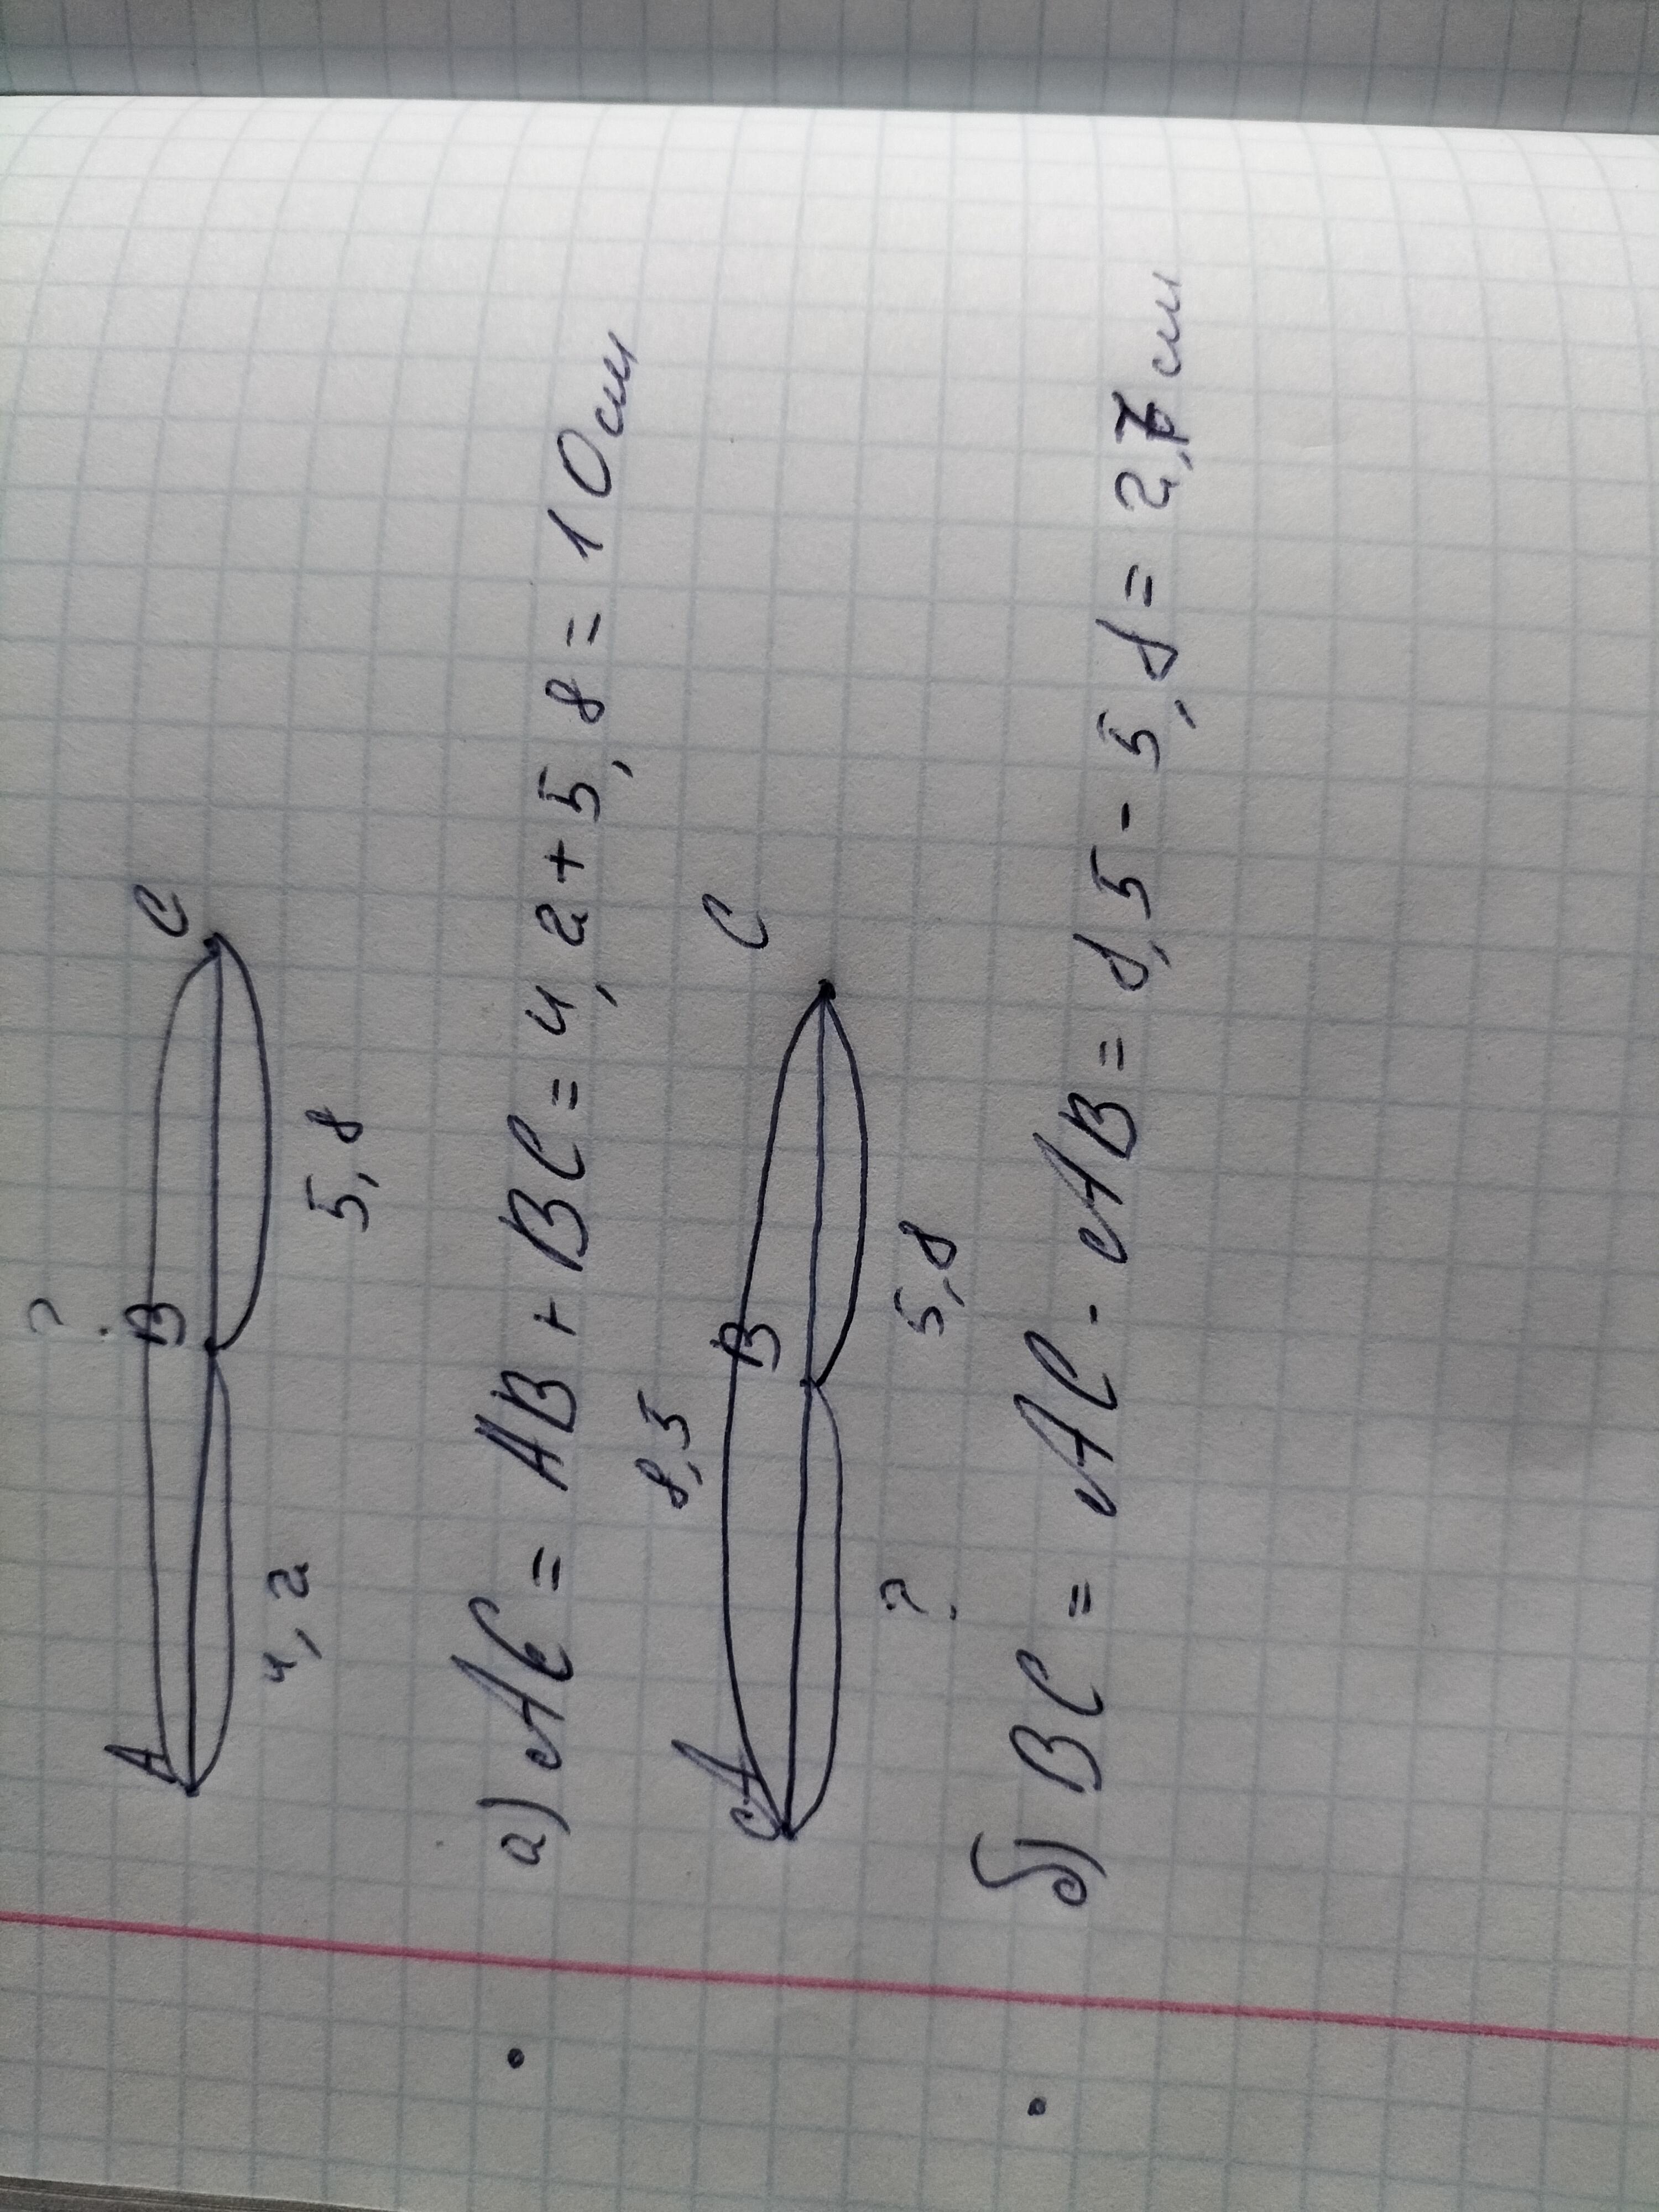 ?
A B C
4,2 5,8
а) AC = AB + BC = 4,2 + 5,8 = 10 см
8,5
A B C
? 5,8
б) BC = AC - AB = 8,5 - 5,8 = 2,7 см